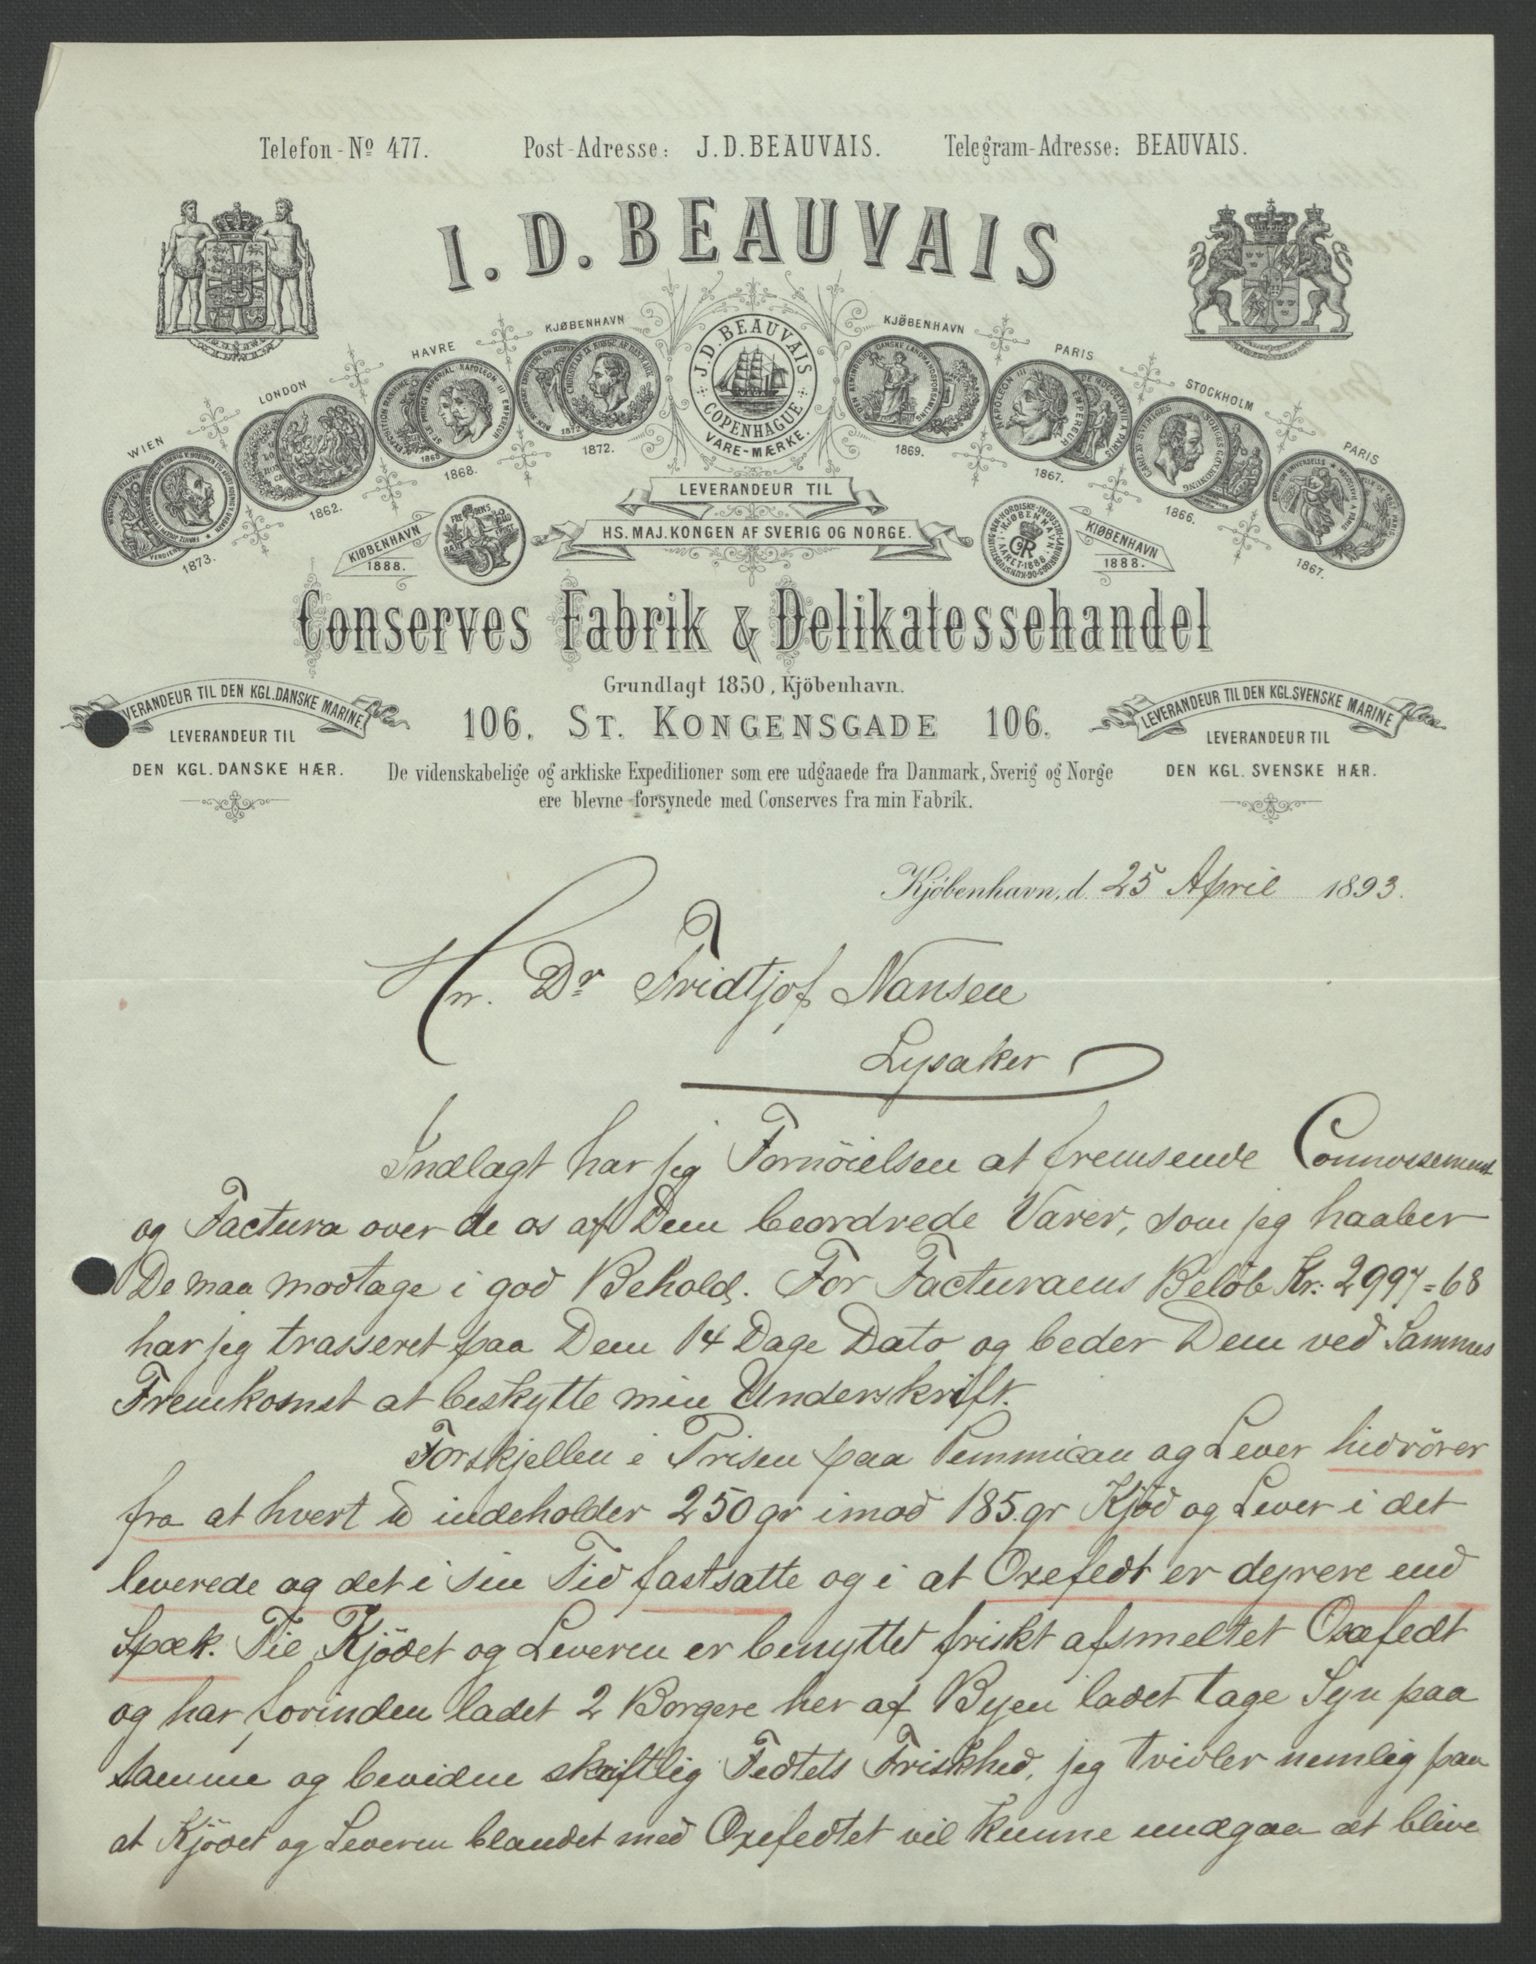 Telefon-No 477. Post-Adresse: J.D.BEAUVAIS. Telegram-Adresse: BEAUVAIS.
I.D.BEAUVAIS
WIEN 1873.
LONDON 1862.
HAVRE 1868.
KJØBENHAVN 1872.
J.D.BEAUVAIS COPENHAGUE
VARE-MÆRKE.
KJØBENHAVN 1869.
PARIS 1867.
STOCKHOLM 1866.
PARIS 1867.
LEVERANDEUR TIL
HS. MAJ. KONGEN AF SVERIG OG NORGE.
KIØBENHAVN 1888.
KIØBENHAVN 1888.
Conserves Fabrik & Delikatessehandel
Grundlagt 1850, Kjöbenhavn.
106. ST. KONGENSGADE 106.
VERANDEUR TIL DEN KGL. DANSKE MARINE.
LEVERANDEUR TIL
DEN KGL. DANSKE HÆR.
LEVERANDEUR TIL DEN KGL. SVENSKE MARINE
LEVERANDEUR TIL
DEN KGL. SVENSKE HÆR.
De videnskabelige og arktiske Expeditioner som ere udgaaede fra Danmark, Sverig og Norge
ere blevne forsynede med Conserves fra min Fabrik.
Kjöbenhavn, d. 25 April 1893.
Hr. Dr Fridtjof Nansen
Lysaker
Indlagt har jeg Fornöielsen at fremsende Connossement
og Factura over de os af Dem beordrede Varer, som jeg haaber
De maa modtage i god Behold. For Facturaens Belöb Kr: 2997=68
har jeg trasseret paa Dem 14 Dage Dato og beder Dem ved Sammes
Fremkomst at beskytte min Underskrift.
Forskjellen i Prisen paa Pemmican og Lever hidrörer
fra at hvert ℔ indeholder 250 gr imod 185 gr Kjöd og Lever i det
leverede og det i sin Tid fastsatte og i at Oxefedt er dyrere end
Spæk. Til Kjödet og Leveren er benyttet friskt afsmeltet Oxefedt
og har forinden ladet 2 Borgere her af Byen ladet tage Syn paa
samme og bevidne skriftlig Fedtets Friskhed, jeg tvivler nemlig paa
at Kjödet og Leveren blandet med Oxefedtet vil kunne undgaa at blive